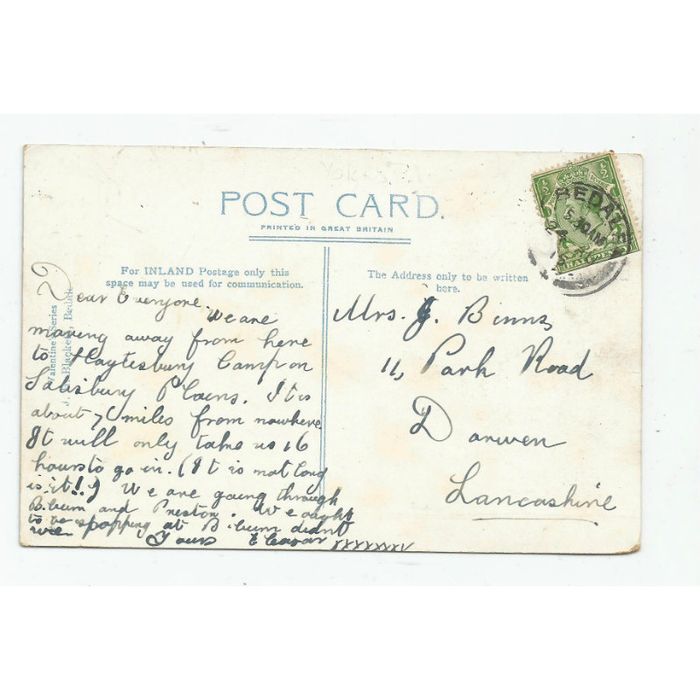 POST CARD.
PRINTED IN GREAT BRITAIN
For INLAND Postage only this
space may be used for communication.
The Address only to be written
here.
Valentine's Series
Dear Everyone.
We are
moving away from here
to Haytesbury Camp on
Salisbury Plains. It is
about 76 miles from nowhere
It will only take us 16
hours to go in. (It is not long
is it!!) We are going through
B.burn and Preston. We ought
to be stopping at B.burn didnt
we
Yours
xxxxxxxx
Mrs. J. Binns
11, Park Road
Darwen
Lancashire
BEDALE